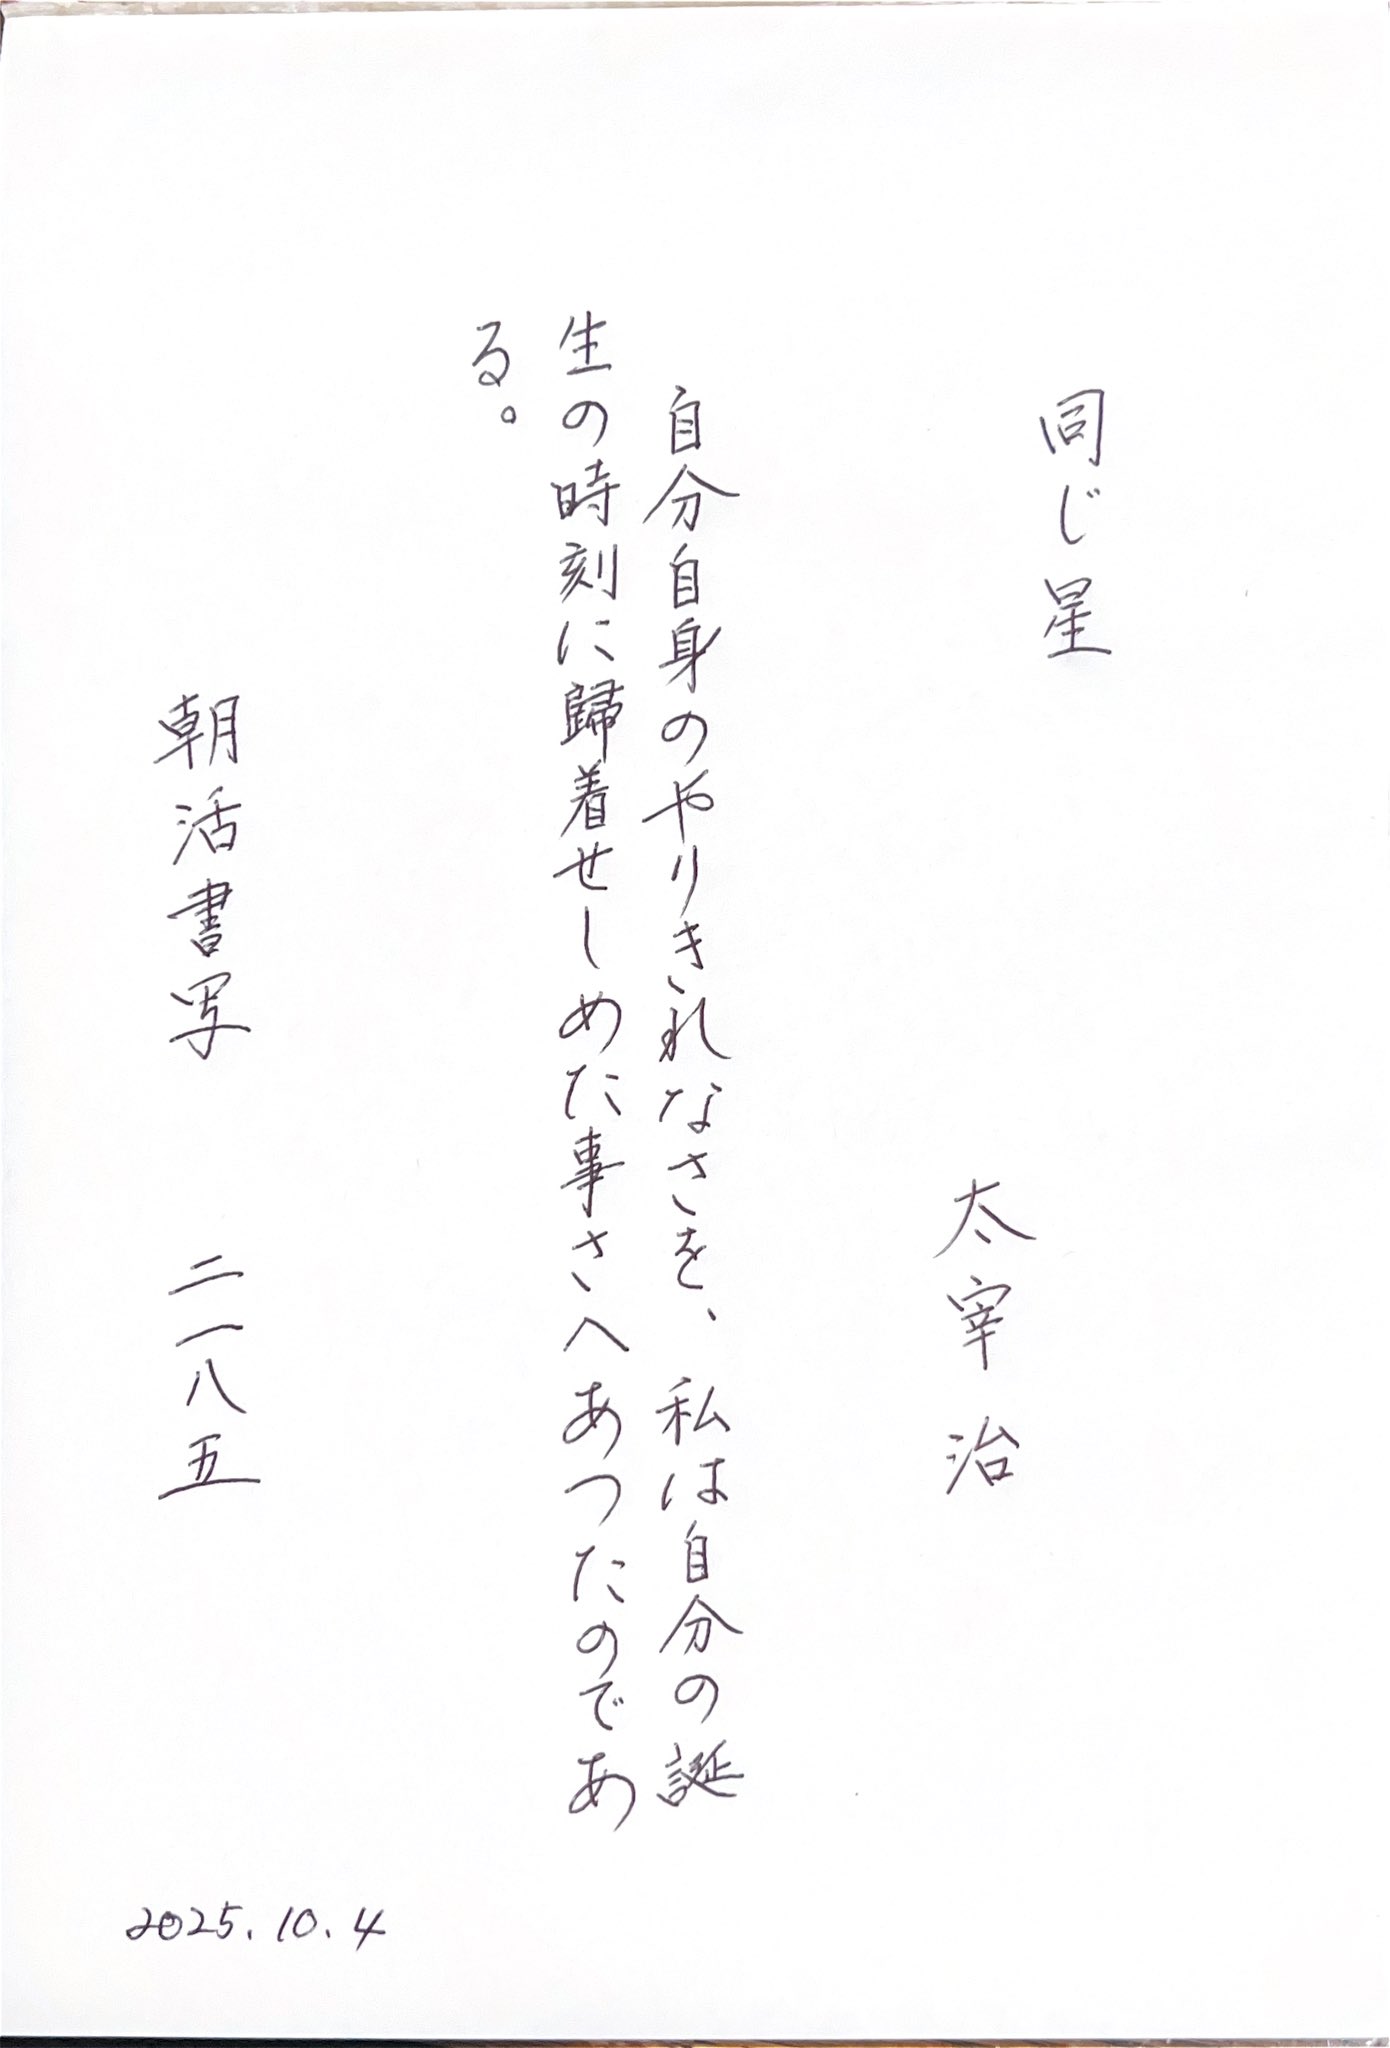 同じ星
太宰治
自分自身のやりきれなさを、私は自分の誕
生の時刻に歸着せしめた事さへあつたのであ
る。
朝活書写 二一八五
2025.10.4